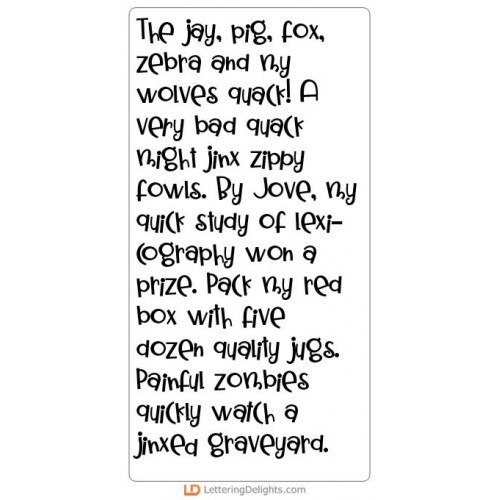 The jay, pig, fox,
zebra and my
wolves quack! A
very bad quack
might jinx zippy
fowls. By Jove, my
quick study of lexi-
cography won a
prize. Pack my red
box with five
dozen quality jugs.
Painful zombies
quickly watch a
jinxed graveyard.
LD LetteringDelights.com